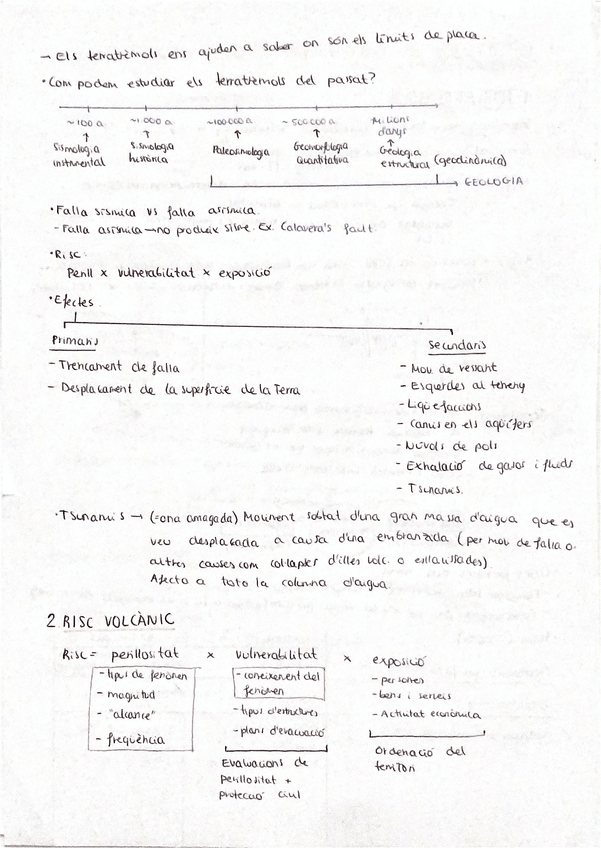 → Els terratrèmols ens ajuden a saber on són els límits de placa.
· Com podem estudiar els terratrèmols del passat?
~100 a ~1.000 a ~100000 a ~500000 a Milions d'anys
Sismologia instrumental
Sismologia històrica
Paleosismologia
Geomorfologia Quantitativa
Geologia estructural (geodinàmica)
GEOLOGIA
· Falla sísmica vs falla asísmica.
- Falla asísmica → no produeix sisme. Ex. Calavera's fault.
· Risc:
Perill x vulnerabilitat x exposició
· Efectes
Primaris
- Trencament de falla
- Desplaçament de la superfície de la Terra
Secundaris
- Mov de vessant
- Esquerdes al terreny
- Liqüefaccions
- Canvis en els aqüífers
- Núvols de pols
- Exhalació de gasos i fluids
- Tsunamis.
· Tsunamis → (=ona amagada) Moviment sobtat d'una gran massa d'aigua que es
veu desplaçada a causa d'una embranzida (per mov de falla o
altres causes com col·lapse d'illes volc. o esllavissades).
Afecta a tota la columna d'aigua.
2. RISC VOLCÀNIC
Risc = perillositat x vulnerabilitat x exposició
- tipus de fenomen
- magnitud
- "alcance"
- freqüència
- coneixement del fenomen
- tipus d'estructures
- plans d'evacuació
Evaluacions de
perillositat +
protecció civil
- persones
- bens i serveis
- Activitat econòmica
Ordenació del
territori